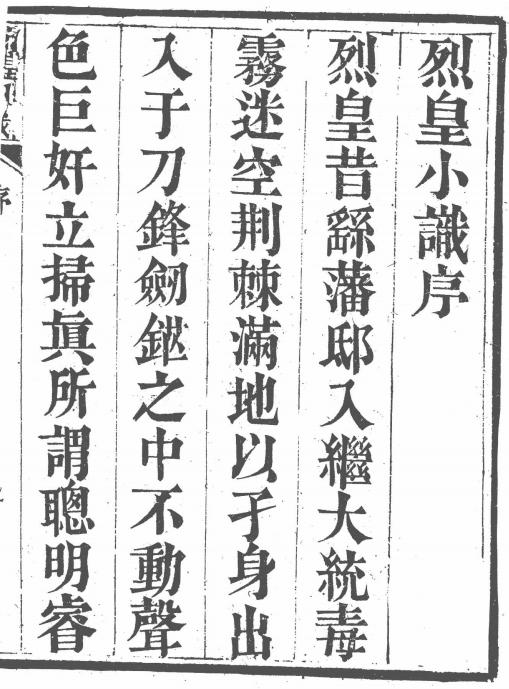 烈皇小識序
烈皇昔繇藩邸入繼大統毒
霧迷空荆棘滿地以孑身出
入于刀鋒劒鋩之中不動聲
色巨奸立掃眞所謂聰明睿
序